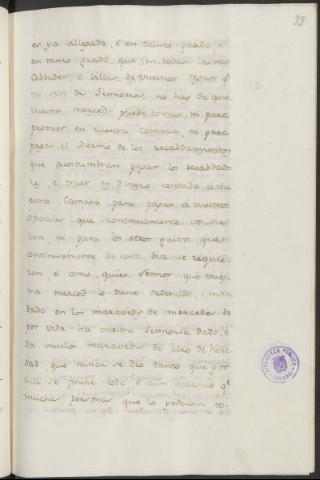 23
es ya allegado, é en tanto grado, é
en tanto grado que en todas las mis
Cibdades, é Villas de vuestros regnos q.e
no son de Señoríos, no hay de que
vuestra merced puede tomar, ni para
proveer en vuestra Camara, ni para
pagar el diezmo de los recabdamientos
que acostumbran pagar los recabdado
res, é traer en dinero contado á vu
estra Camara para pagar á vuestros
oficiales que continuamente vos sir
ven, ni para los otros gastos que
continuamente de cada dia se requie
ren, é como quier Señor que vues
tra merced lo tiene ordenado, é man
dado en los maravedis de mercedes de
por vida ha vuestra Señoría dado, é
da muchos maravedis de juro de here
dad que nunca se dió tanto que por
alli se finche todo, é aun acaesció q.e
muchas personas que lo podrian to-
BIBLIOTECA PUBLICA
TOLEDO